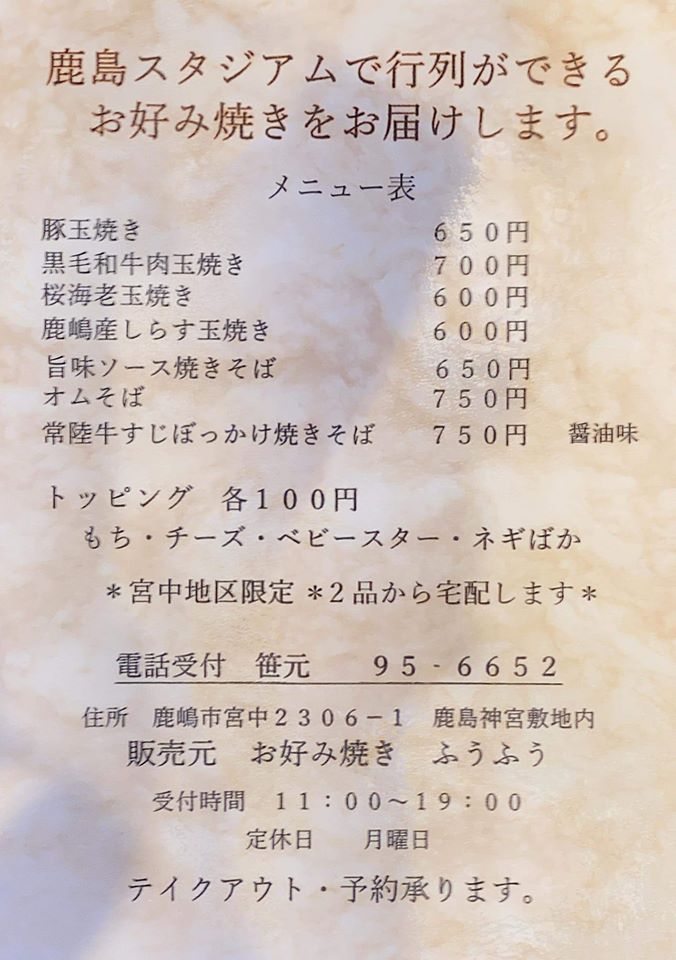 鹿島スタジアムで行列ができる
お好み焼きをお届けします。
メニュー表
豚玉焼き　650円
黒毛和牛肉玉焼き　700円
桜海老玉焼き　600円
鹿嶋産しらす玉焼き　600円
旨味ソース焼きそば　650円
オムそば　750円
常陸牛すじぼっかけ焼きそば　750円　醤油味
トッピング　各100円
もち・チーズ・ベビースター・ネギばか
＊宮中地区限定 ＊2品から宅配します＊
電話受付　笹元　95-6652
住所　鹿嶋市宮中2306－1　鹿島神宮敷地内
販売元　お好み焼き　ふうふう
受付時間　11：00～19：00
定休日　月曜日
テイクアウト・予約承ります。